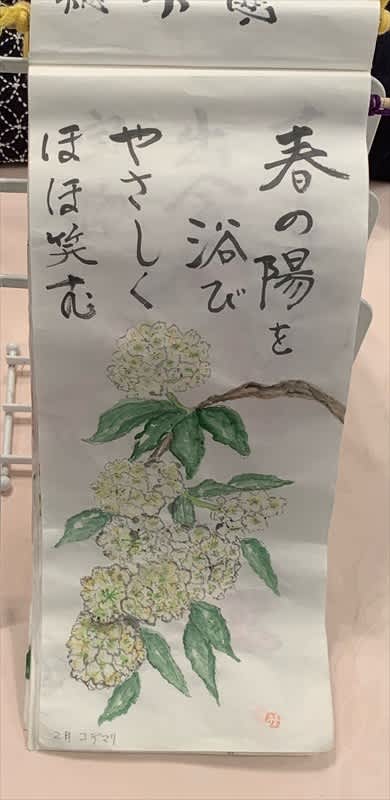 春の陽を
浴び
やさしく
ほほ笑む
2月 コデマリ